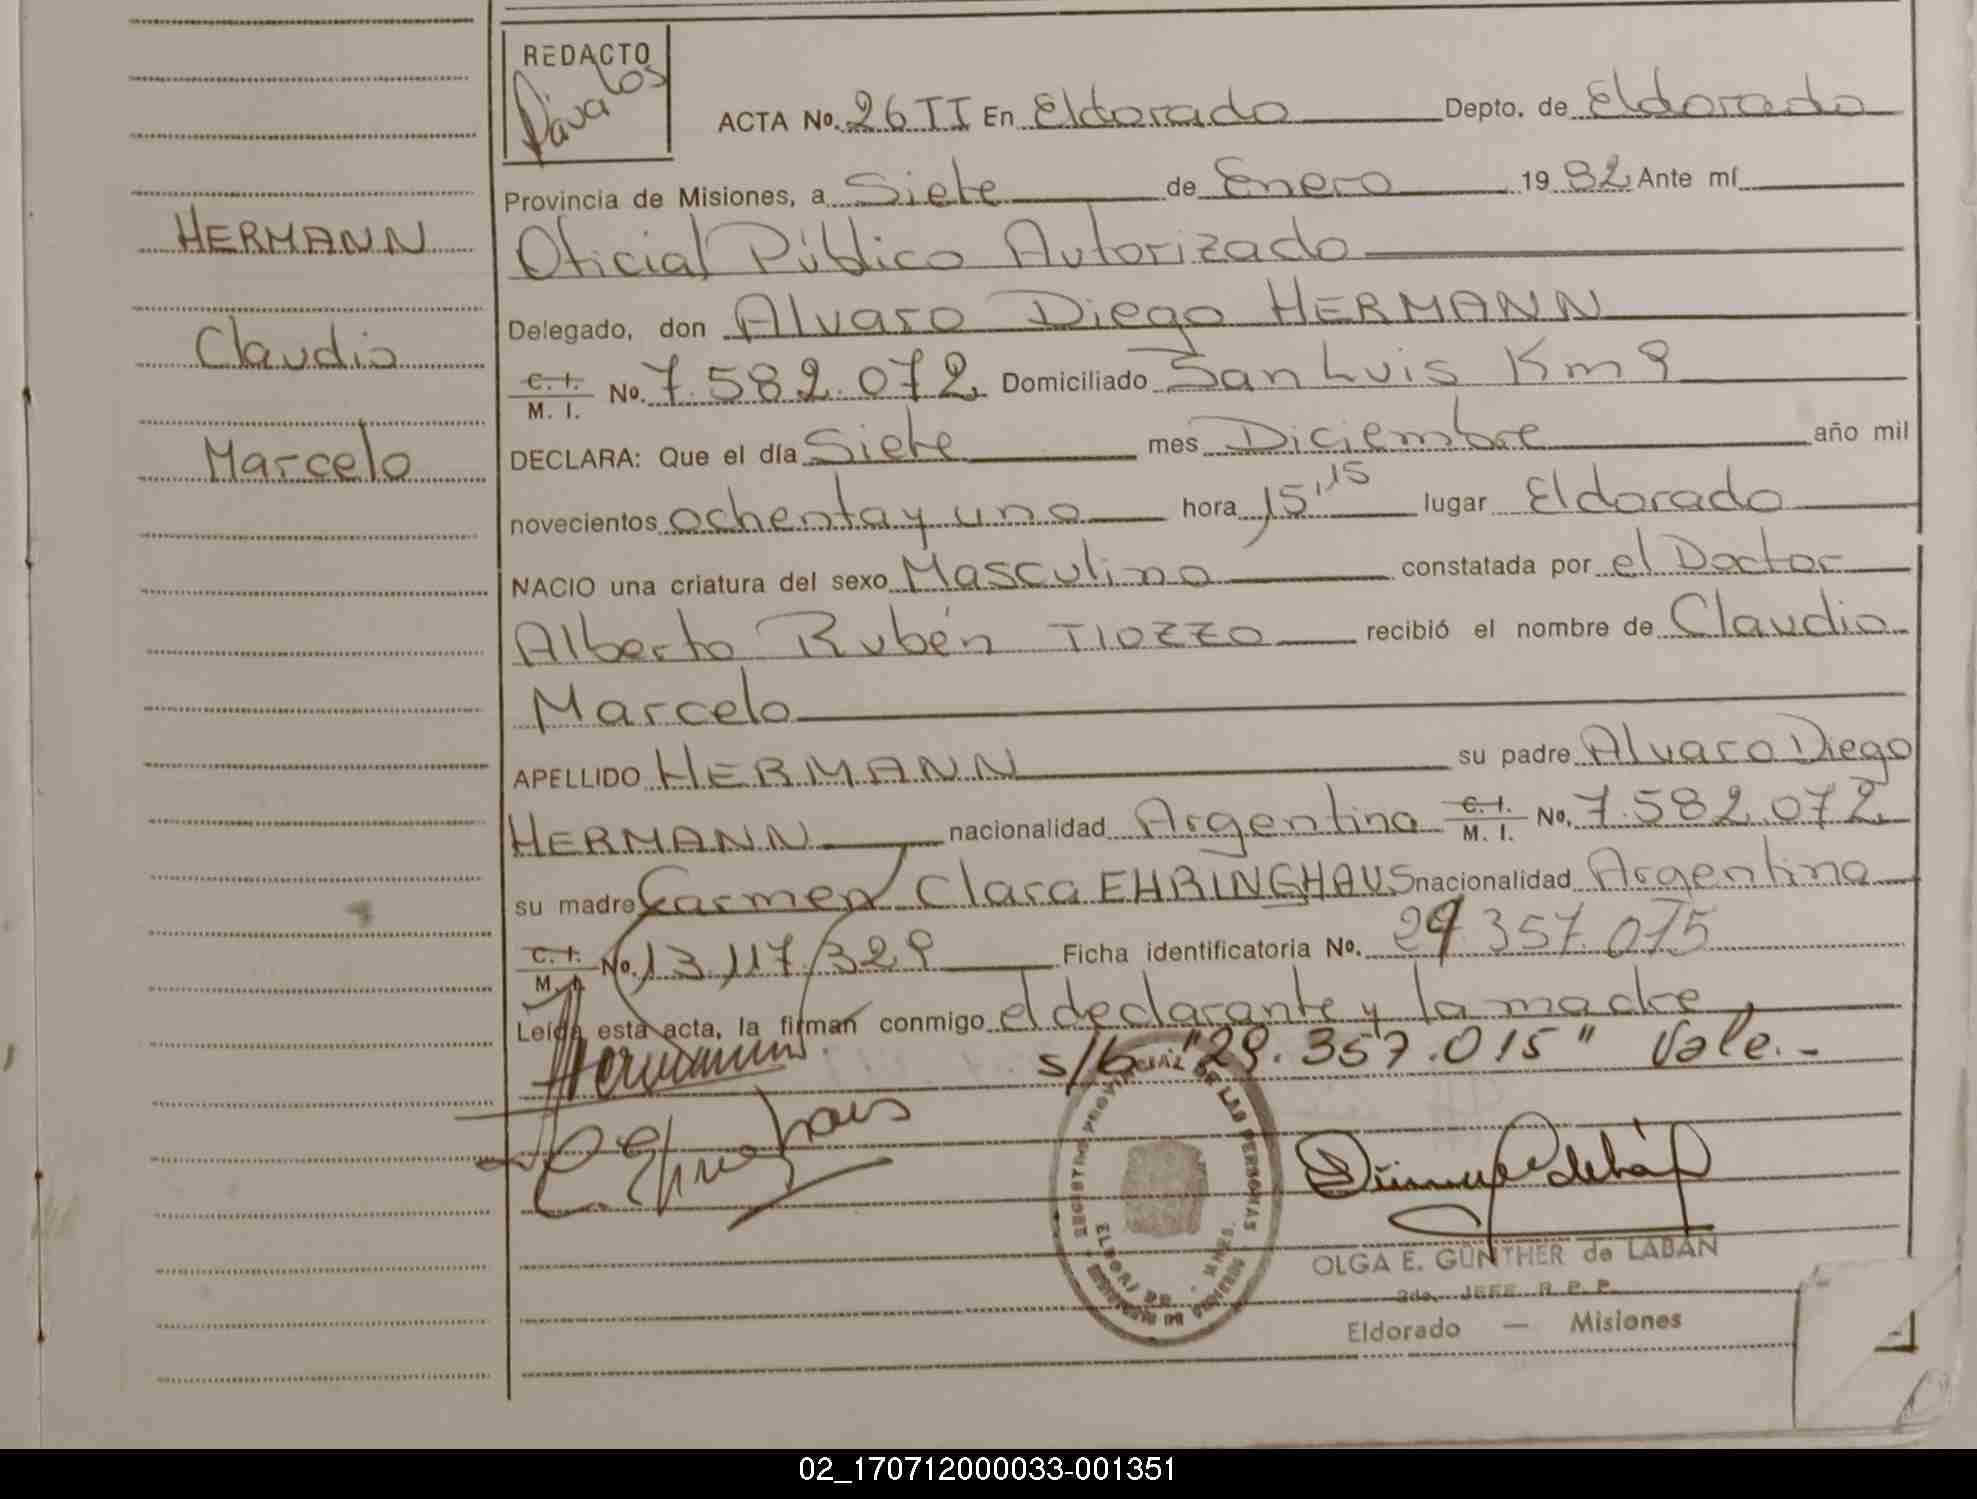 REDACTO
Davalos
ACTA No. 26 TI En Eldorado Depto. de Eldorado
Provincia de Misiones, a Siete de Enero 19 82 Ante mí
HERMANN
Oficial Público Autorizado
Delegado, don Alvaro Diego HERMANN
Claudio
C. I. M. I. No. 7.582.072 Domiciliado San Luis Km 9
DECLARA: Que el día Siete mes Diciembre año mil
Marcelo
novecientos ochenta y uno hora 15,15 lugar Eldorado
NACIO una criatura del sexo Masculino constatada por el Doctor
Alberto Rubén TIOZZO recibió el nombre de Claudio
Marcelo
APELLIDO HERMANN su padre Alvaro Diego
HERMANN nacionalidad Argentina C. I. M. I. No. 7.582.072
su madre Carmen Clara EHRINGHAUS nacionalidad Argentina
C. I. M. I. No. 13.117.329 Ficha identificatoria No. 29.357.075
Leída esta acta, la firman conmigo el declarante y la madre
s/b "29.357.015" Vale.-
Hermann
C. Ehringhaus
REGISTRO PROVINCIAL DE LAS PERSONAS
OLGA E. GÜNTHER de LABÁN
2do. JEFE R. P. P.
Eldorado — Misiones
02_170712000033-001351